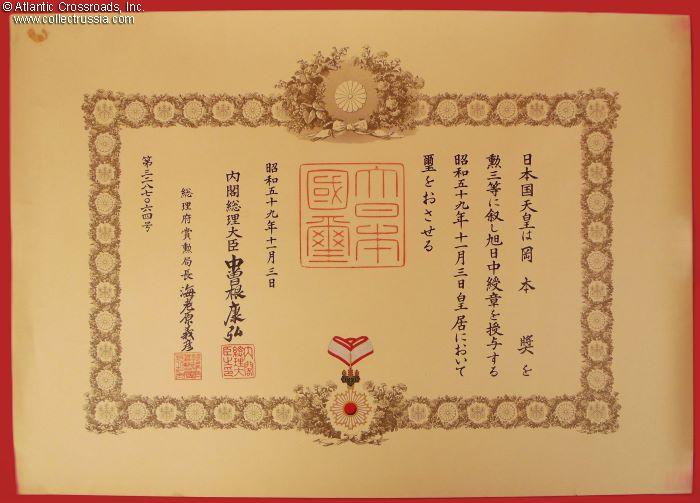 © Atlantic Crossroads, Inc.
www.collectrussia.com
日本国天皇は岡本 奬を
勲三等に叙し旭日中綬章を授与する
昭和五十九年十一月三日皇居において
璽をおさせる
大日本
國璽
昭和五十九年十一月三日
内閣総理大臣 中曽根康弘
内閣
総理大
臣之印
総理府賞勲局長 海老原義彦
第三二八七〇六四号